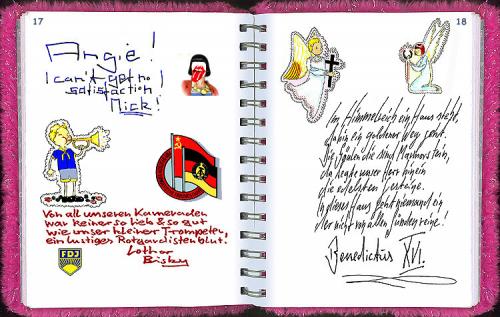 17
Angie!
I can't get no
satisfaction
Mick!
Von all unseren Kameraden
war keiner so lieb & so gut
wie unser kleiner Trompeter,
ein lustiges Rotgardistenblut!
Lothar
Bisky
FDJ
18
Im Himmelreich ein Haus steht,
dahin ein goldener Weg geht.
Die Säulen die sind Marmorstein,
da legte unser Herr hinein
die edelsten Gesteine.
In dieses Haus geht niemand ein
der nicht von allen Sünden reine!
Benedictus XVI.